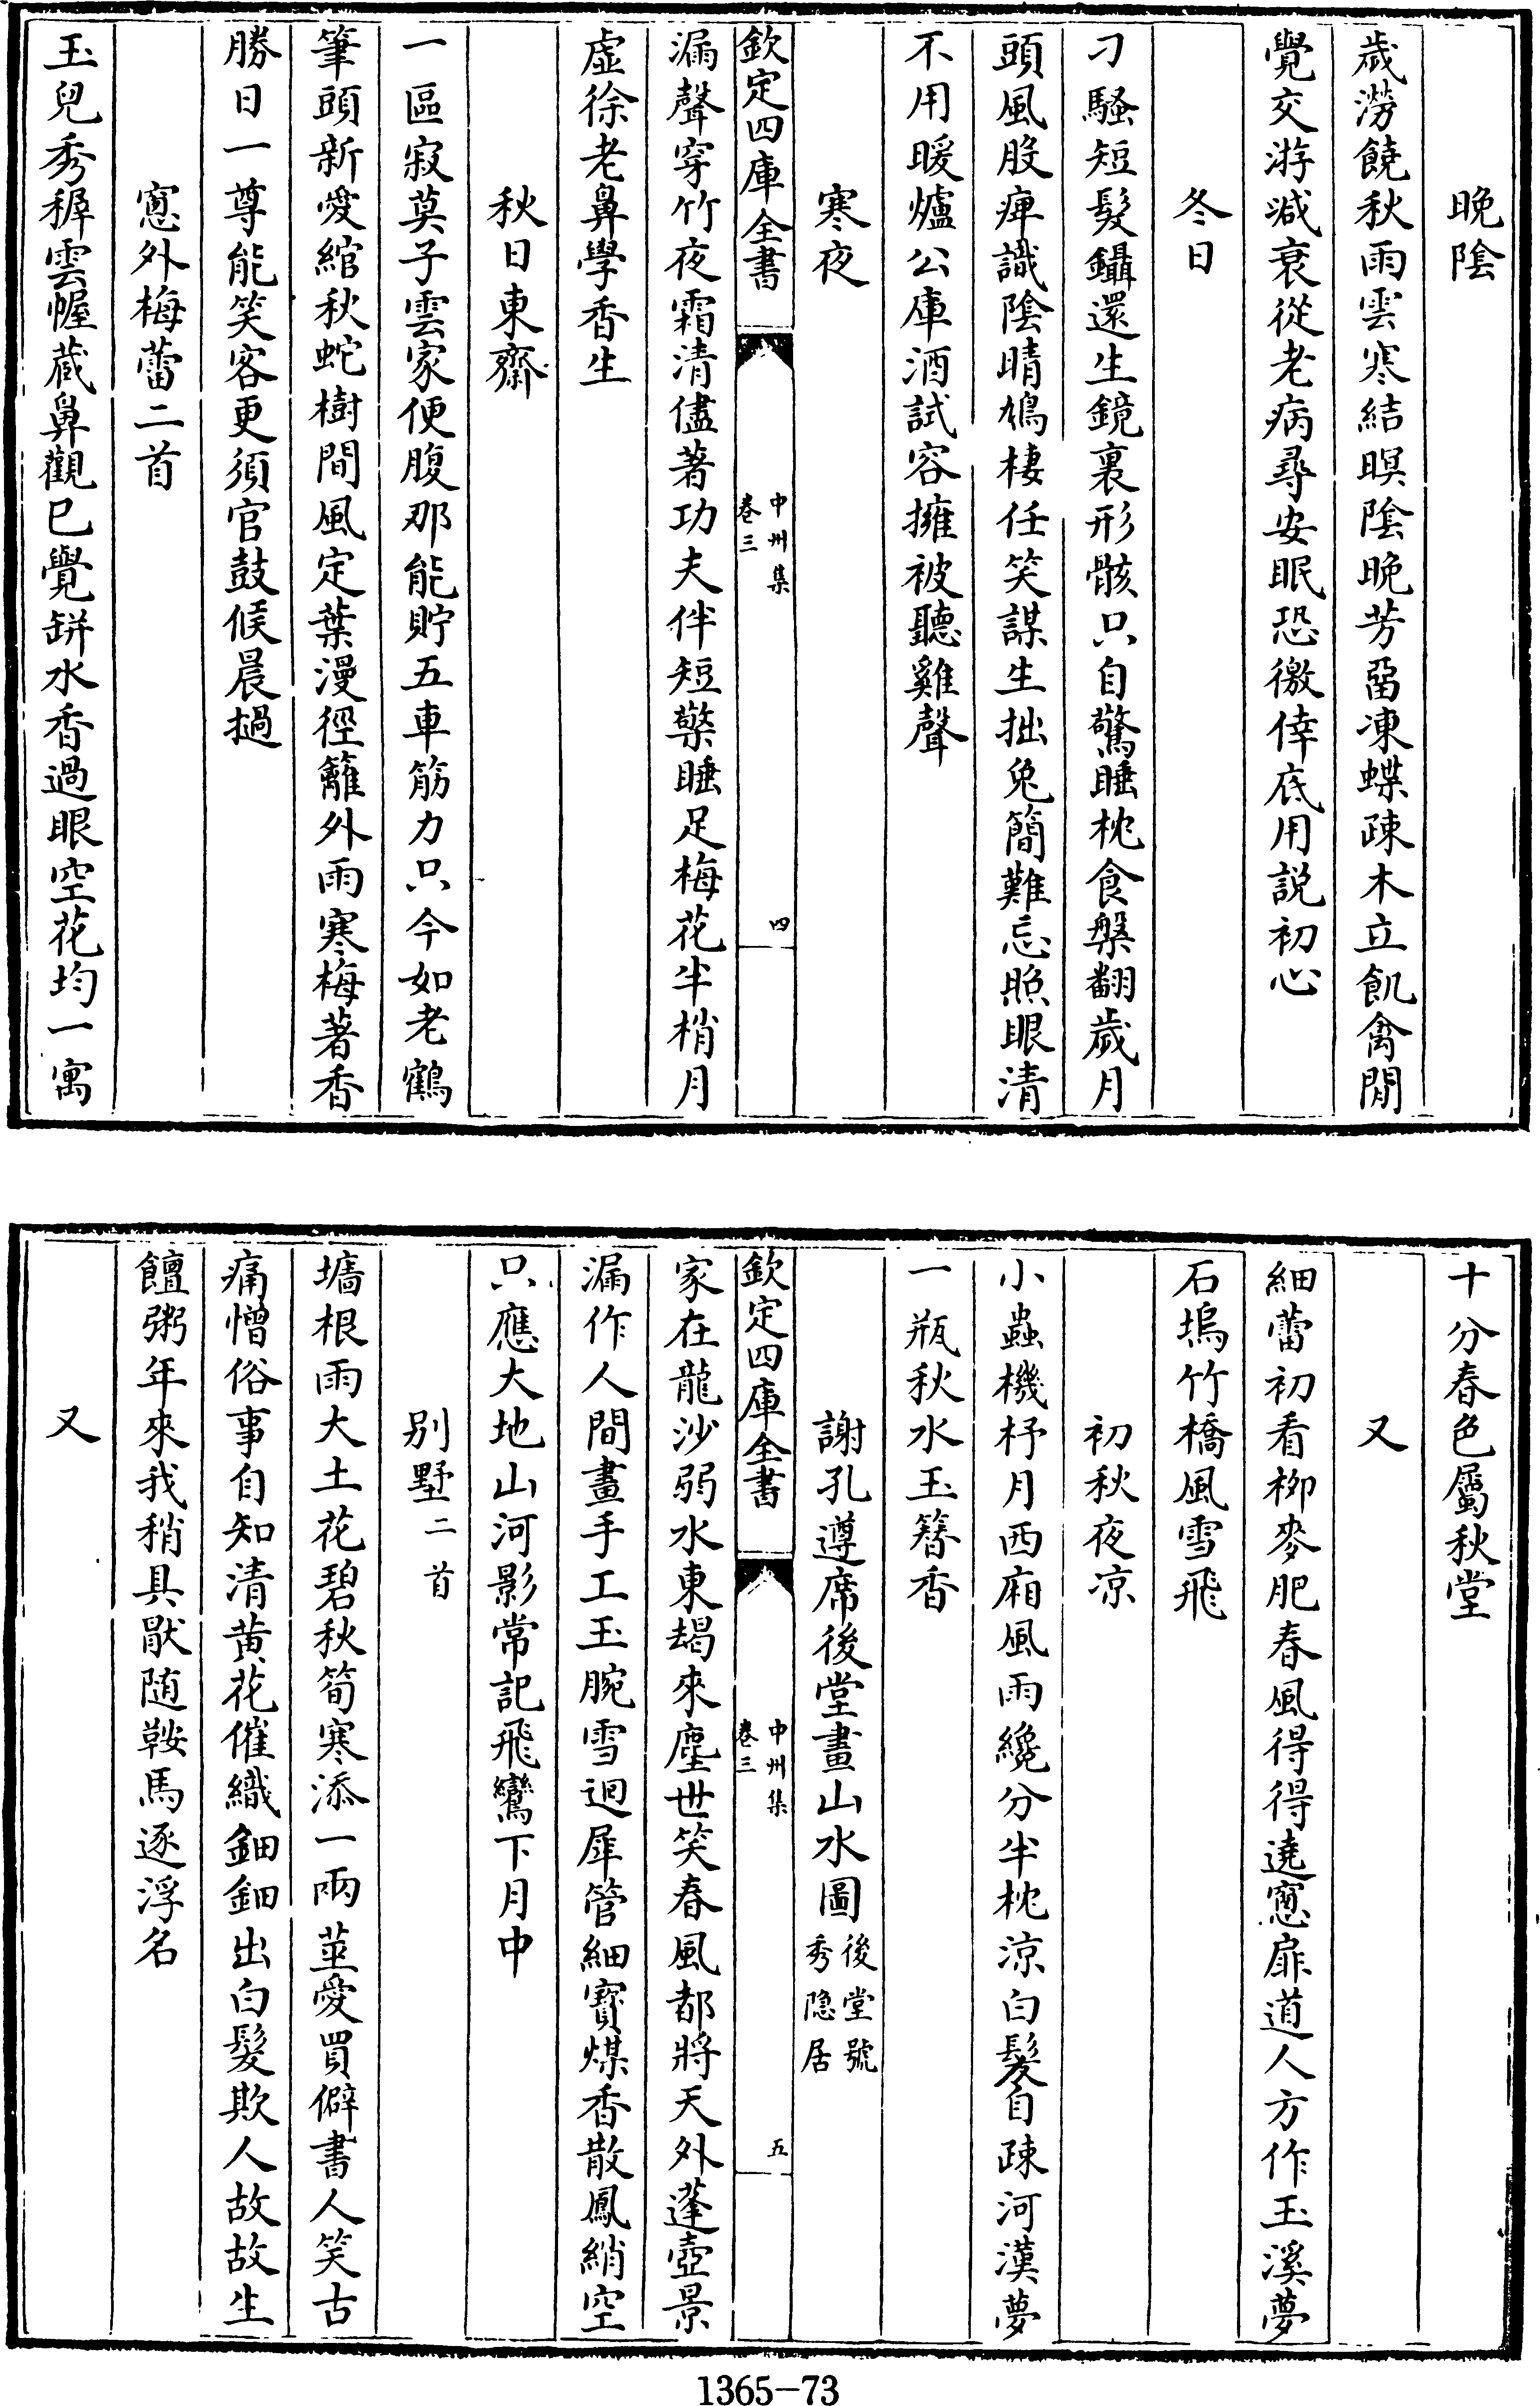 晚陰
歲澇饒秋雨雲寒結暝陰晚芳留凍蝶疎木立飢禽閒
覺交游減衰從老病尋安眠恐徼倖底用説初心
冬日
刁騷短髮鑷還生鏡裏形骸只自驚睡枕食槃翻歲月
頭風股痺識陰晴鳩棲任笑謀生拙兔簡難忘照眼清
不用暖爐公庫酒試容擁被聽雞聲
寒夜
欽定四庫全書
中州集
卷三
四
漏聲穿竹夜霜清儘著功夫伴短檠睡足梅花半梢月
虛徐老鼻學香生
秋日東齋
一區寂莫子雲家便腹那能貯五車筋力只今如老鶴
筆頭新愛綰秋蛇樹間風定葉漫徑籬外雨寒梅著香
勝日一尊能笑客更須官鼓候晨撾
窻外梅蕾二首
玉兒秀稺雲幄蔵鼻觀已覺缾水香過眼空花均一寓
十分春色屬秋堂
又
細蕾初看柳麥肥春風得得遶窻扉道人方作玉溪夢
石塢竹橋風雪飛
初秋夜凉
小蟲機杼月西廂風雨纔分半枕涼白髮自疎河漢夢
一瓶秋水玉簪香
謝孔遵席後堂畫山水圖後堂號秀隐居
欽定四庫全書
中州集
卷三
五
家在龍沙弱水東朅來塵世笑春風都將天外蓬壺景
漏作人間畫手工玉腕雪迴犀管細寶煤香散鳳綃空
只應大地山河影常記飛鸞下月中
别墅二首
墻根雨大土花碧秋筍寒添一兩莖愛買僻書人笑古
痛憎俗事自知清黄花催織鈿鈿出白髮欺人故故生
饘粥年來我稍具厭随鞍馬逐浮名
又
1365-73